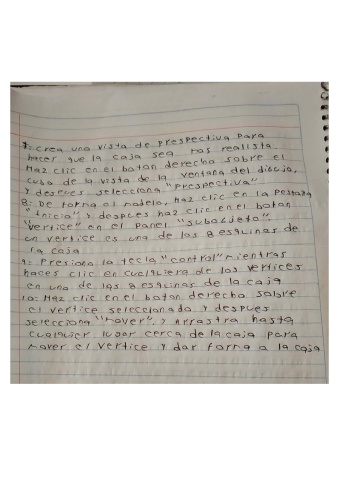 7: crea una vista de prespectiva para
hacer que la caja sea mas realista.
Haz clic en el boton derecho sobre el
cubo de la vista de la ventana del disejo,
y despues selecciona "prespectiva"
8: De forma al modelo, haz clic en la pestaza
"inicia" y despues haz clic en el boton
"vertice" en el panel "subobjeto".
un vertice es una de las 8 esquinas de
la caja
9: Presiona la tecla "control" mientras
haces clic en cualquiera de los vertices
en una de las 8 esquinas de la caja
10: Haz clic en el boton derecho sobre
el vertice seleccionado y despues
selecciona "mover", y arrastra hasta
cualquier lugar cerca de la caja para
mover el vertice y dar forma a la caja